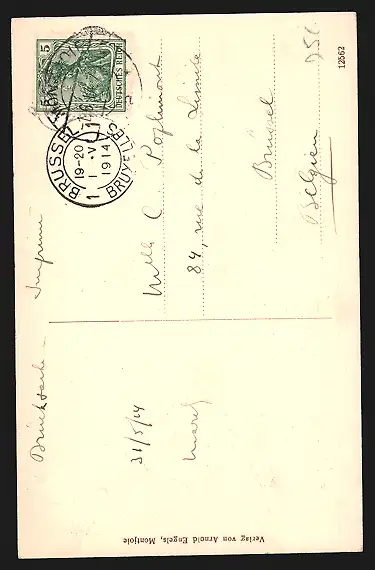 Drucksache - Imprimé
5
DEUTSCHES REICH
BRUSSEL
1
19-20
1 • V
1914
BRUXELLES
Mlle C
84, rue de la
Brüssel
Belgien
31/5/14
Marcel
12562
Verlag von Arnold Engels, Montjoie